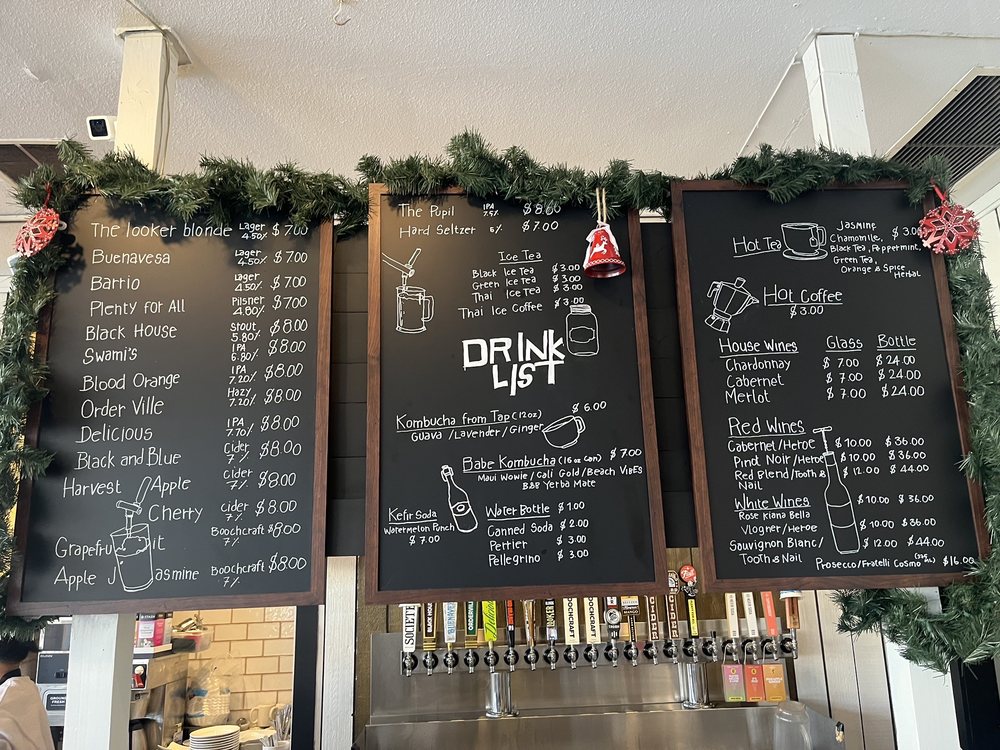 The looker blonde Lager 4.50% $7.00
Buenavesa Lager 4.50% $7.00
Barrio Lager 4.50% $7.00
Plenty for All Pilsner 4.80% $7.00
Black House Stout 5.80% $8.00
Swami's IPA 6.80% $8.00
Blood Orange IPA 7.20% $8.00
Order Ville Hazy 7.20% $8.00
Delicious IPA 7.70% $8.00
Black and Blue Cider 7% $8.00
Harvest Apple Cider 7% $8.00
Cherry cider 7% $8.00
Grapefruit Boochcraft 7% $8.00
Apple Jasmine Boochcraft 7% $8.00
The Pupil IPA 7.5% $8.00
Hard Seltzer 5% $7.00
Ice Tea
Black Ice Tea $3.00
Green Ice Tea $3.00
Thai Ice Tea $3.00
Thai Ice Coffee $3.00
DRINK
LIST
Kombucha from Tap (12oz) $6.00
Guava /Lavender/Ginger
Babe Kombucha (16 oz can) $7.00
Maui Wowie/ Cali Gold/Beach ViBES
Yerba Mate
Kefir Soda
Watermelon Punch
$7.00
Water Bottle $1.00
Canned Soda $2.00
Perrier $3.00
Pellegrino $3.00
Hot Tea Jasmine $3.00
Chamomile,
Black Tea, Peppermint,
Green Tea,
Orange & Spice
Herbal
Hot Coffee
$3.00
House Wines Glass Bottle
Chardonnay $7.00 $24.00
Cabernet $7.00 $24.00
Merlot $7.00 $24.00
Red Wines
Cabernet/Heroe $10.00 $36.00
Pinot Noir/Heroe $10.00 $36.00
Red Blend/Tooth & Nail $12.00 $44.00
White Wines
Rose Kiana Bella $10.00 $36.00
Viogner/Heroe $10.00 $36.00
Sauvignon Blanc/ $12.00 $44.00
Tooth & Nail
Prosecco/Fratelli Cosmo $16.00
SOCIETE
BLACK HOUSE
BUENAVEZA
ORDERVILLE
BOOCHCRAFT
CIDER